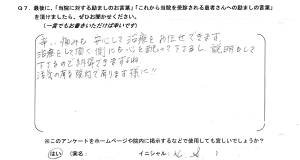 Q7. 最後に、「当院に対する励ましのお言葉」「これから当院を受診される患者さんへの励ましの言葉」
を頂けましたら、ぜひお聞かせください。
(一言でもお書きいただければ幸いです)
辛い痛みも安心して治療をお任せできます。
治療をして頂く側にも心を配って下さるし、説明もして
下さるので納得できます。
活気の有る院内であります様に!!
※このアンケートをホームページや院内に掲示するなどで使用しても宜しいでしょうか?
はい (実名: イニシャル: )